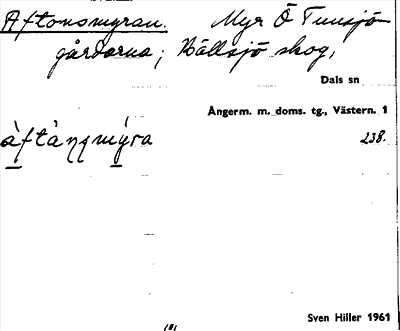 Aftonsmyran. Myr Ö Tunsjö-
gårdarna; Bällsjö skog,
Dals sn
Ångerm. m. doms. tg., Västern. 1
àftànsmýra 238.
Sven Hiller 1961